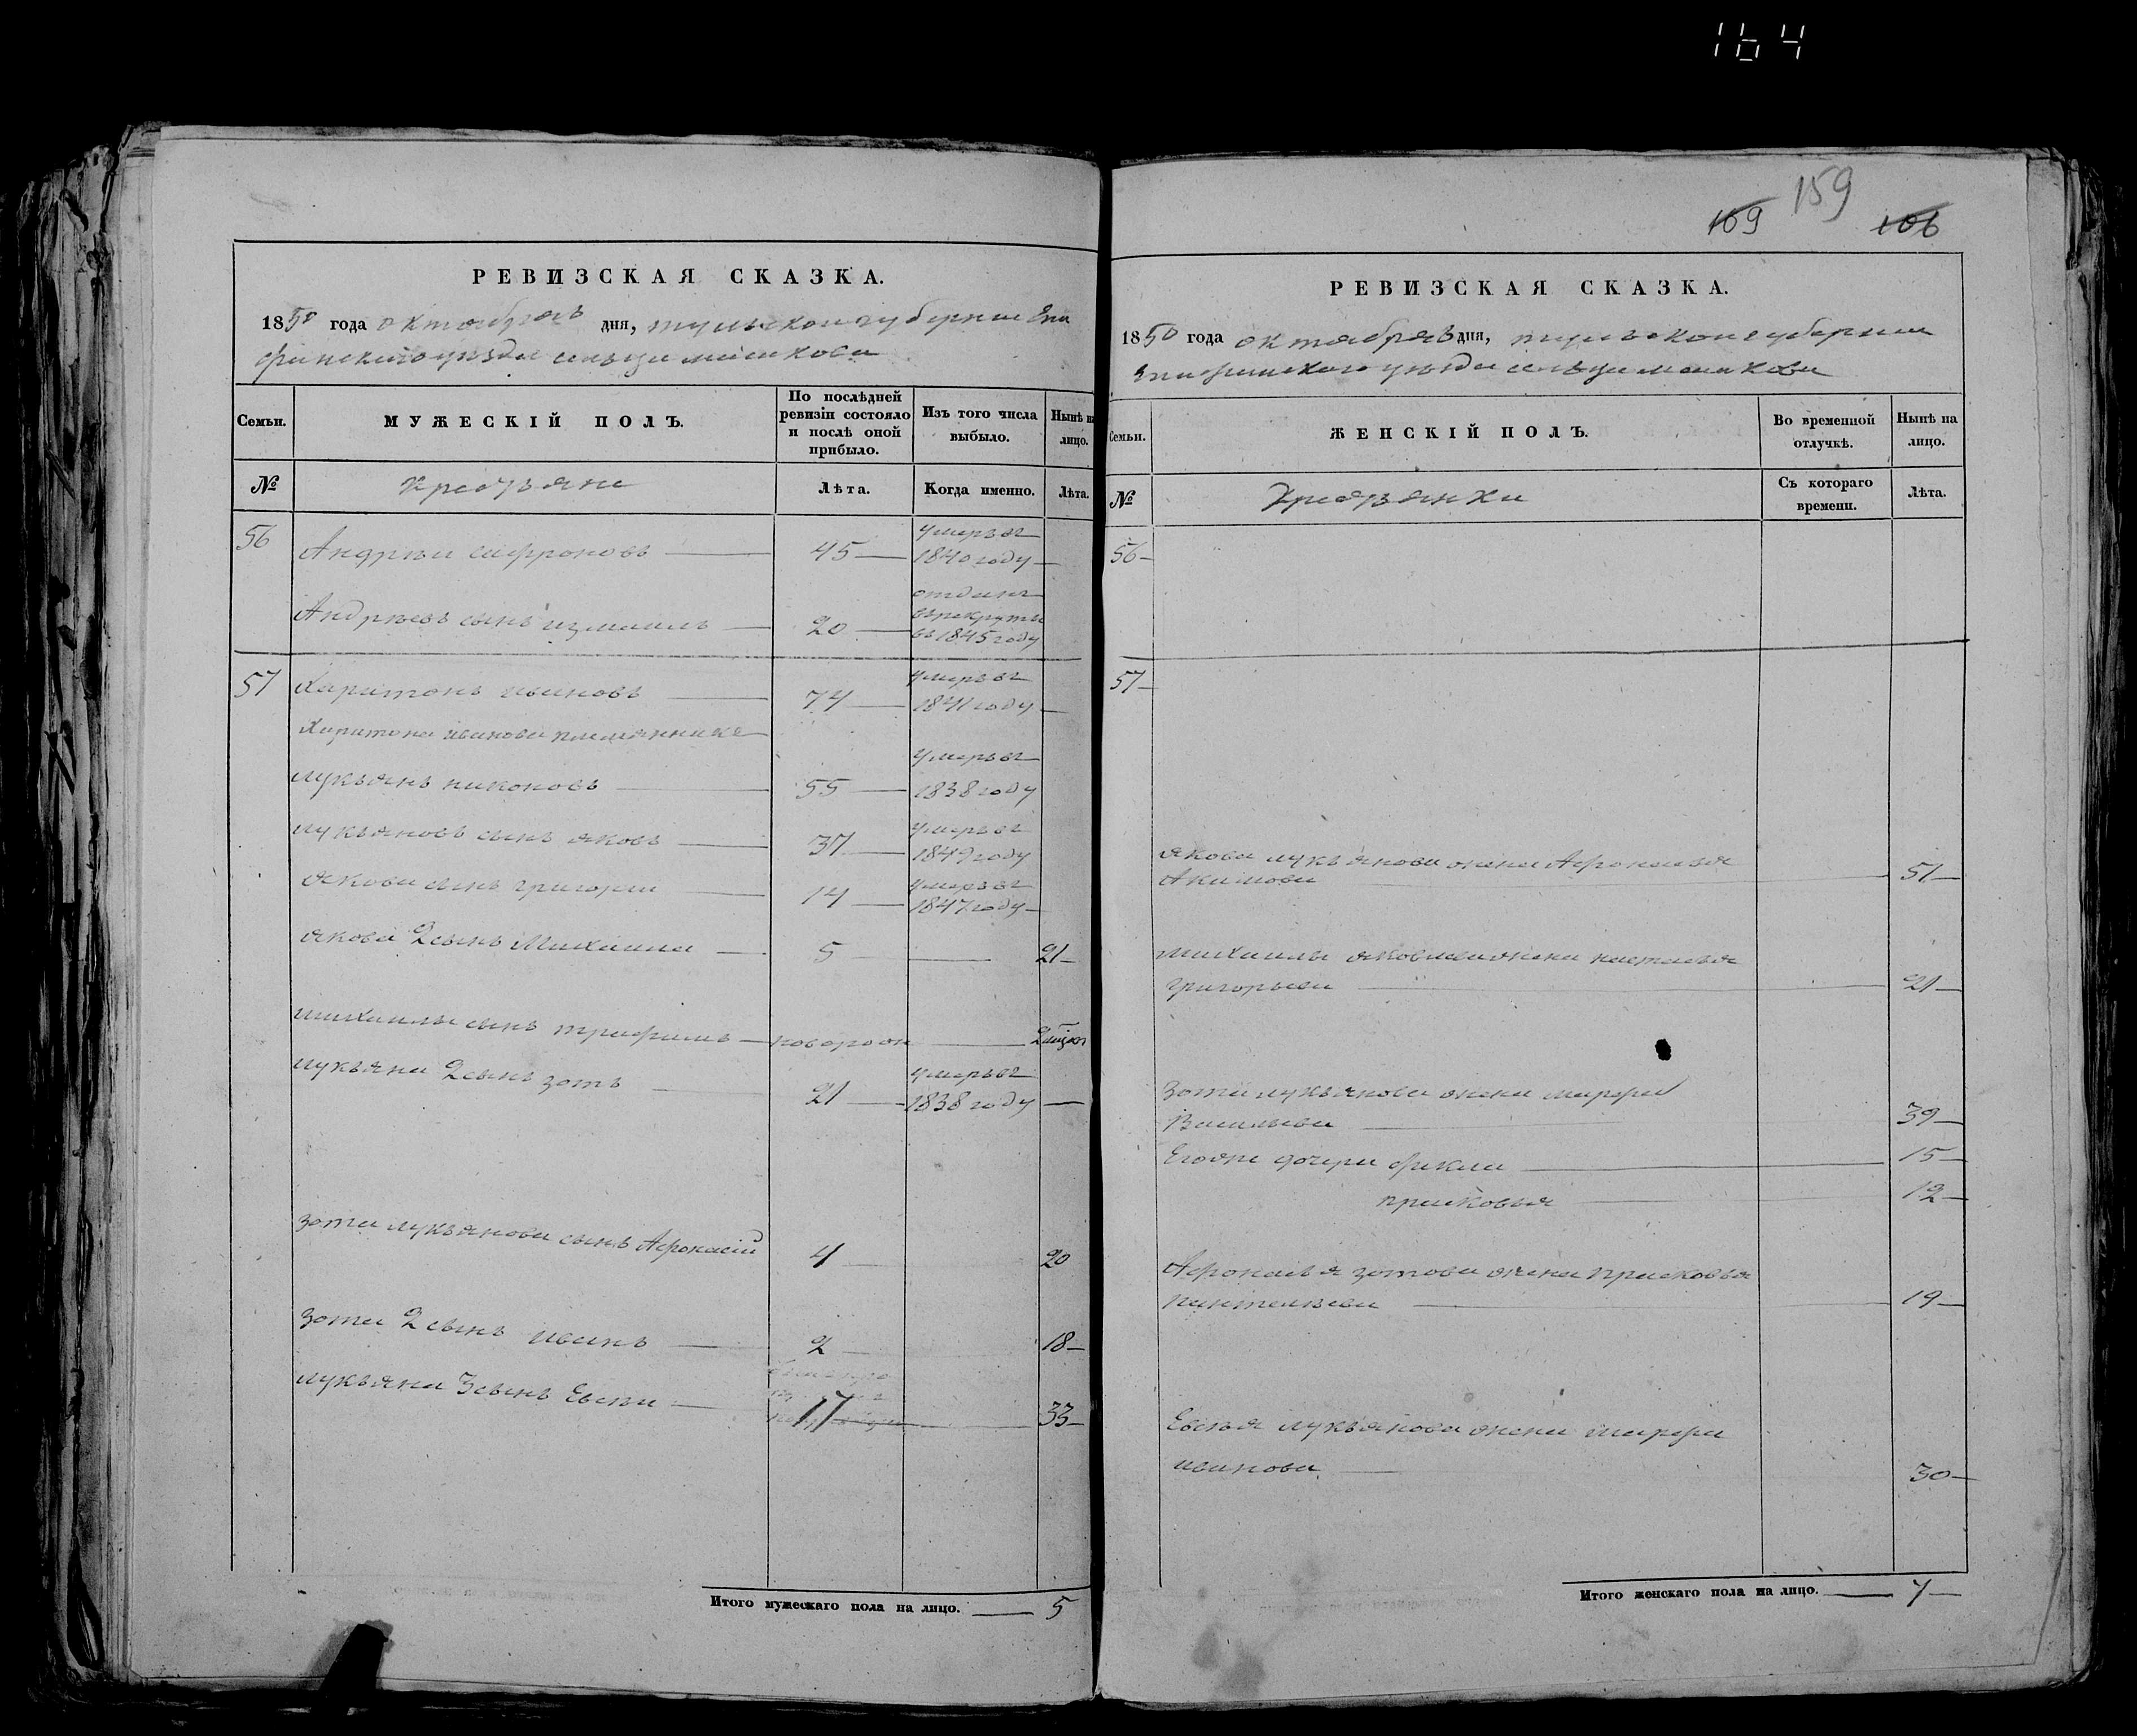 164
РЕВИЗСКАЯ СКАЗКА.
1850 года октября дня, тульской губернии Епи
фанского уезда сельца
Семьи.
МУЖЕСКІЙ ПОЛЪ.
По послѣдней ревизіи состояло и послѣ оной прибыло.
Изъ того числа выбыло.
Нынѣ на лицо.
№
Крестьяне
Лѣта.
Когда именно.
Лѣта.
56 Андрей Сафроновъ 45 умеръ въ 1840 году
Андреевъ сынъ измаилъ 20 отданъ в рекруты въ 1845 году
57 Харитонъ ивановъ 74 умеръ въ 1841 году
Харитона иванова племянники
лукьянъ никоновъ 55 умеръ въ 1838 году
лукьяновъ сынъ яковъ 37 умеръ въ 1849 году
якова сынъ григории 14 умеръ въ 1847 году
якова 2 сынъ Михаила 5 21
михаилы сынъ трифимъ новорож 2
лукьяна 2 сынъ зотъ 21 умеръ въ 1838 году
зота лукьянова сынъ Афонасій 4 20
зота 2 сынъ иванъ 2 18
лукьяна 3 сынъ Евсеи 17 33
Итого мужескаго пола на лицо. 5
159
109
106
РЕВИЗСКАЯ СКАЗКА.
1850 года октября дня, тульской губернии
Епифанского уезда сельца
Семьи.
ЖЕНСКІЙ ПОЛЪ.
Во временной отлучкѣ.
Нынѣ на лицо.
№
Крестьянки
Съ котораго времени.
Лѣта.
56
57
якова лукьянова жена Афонасья
Акимова 51
михаилы яковлева жена настасья
григорьева 21
зота лукьянова жена марфа
Васильева 39
Егоже дочери фекла 15
прасковья 12
Афонасья зотова жена прасковья
пантелеева 19
Евсея лукьянова жена марфа
иванова 30
Итого женскаго пола на лицо. 7